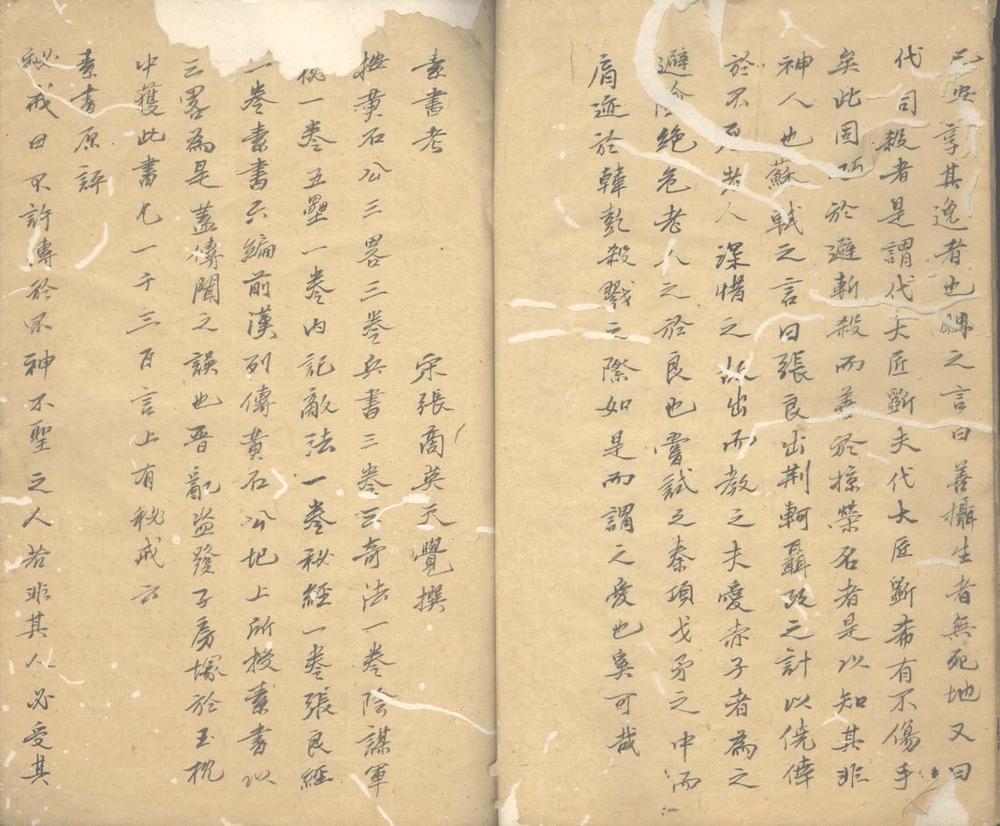 享其逸者也聃之言曰善攝生者無死地又曰
代司殺者是謂代大匠斲夫代大匠斲希有不傷手
矣此固於避斬殺而善於掠榮名者是以知其非
神人也蘇軾之言曰張良出荆軻聶政之計以僥倖
於不死老人深惜之故出而教之夫愛赤子者為之
避險絶危老人之於良也嘗試之秦項戈矛之中而
肩迹於韓彭殺戮之際如是而謂之愛也奚可哉
素書考
宋張商英天覺撰
按黄石公三畧三卷兵書三卷三奇法一卷陰謀軍
秘一卷五壘一卷内記敵法一卷秘經一卷張良經
一卷素書六編前漢列傳黄石公圯上所授素書以
三畧為是蓋傳聞之誤也晋亂盗發子房塚於玉枕
中獲此書凡一千三百言上有秘戒云
素書原評
秘戒曰不許傳於不神不聖之人若非其人必受其